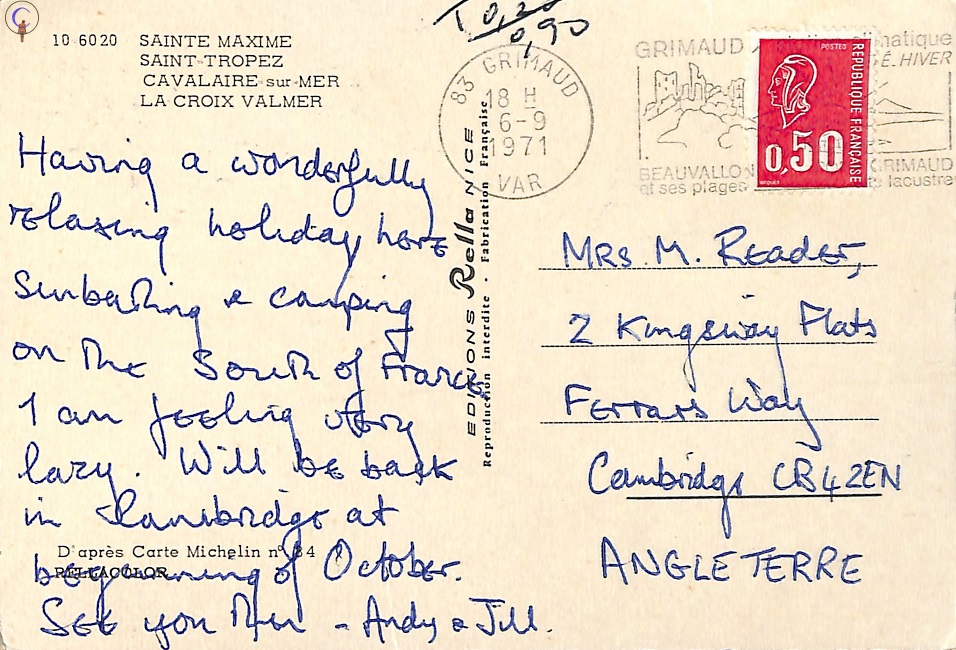 10 6020 SAINTE MAXIME
SAINT-TROPEZ
CAVALAIRE sur MER
LA CROIX VALMER
T 0,20
0,90
83 GRIMAUD
18 H
6-9
1971
VAR
GRIMAUD
É. HIVER
BEAUVALLON GRIMAUD
et ses plages lacustre
POSTES
RÉPUBLIQUE FRANÇAISE
0,50
Having a wonderfully
relaxing holiday here
Sunbathing & camping
on the South of France
I am feeling very
lazy. Will be back
in Cambridge at
beginning of October.
See you then - Andy & Jill.
D'après Carte Michelin nº 84
RELLACOLOR
EDITIONS Rella NICE
Reproduction interdite · Fabrication Française
MRS M. READER,
2 Kingsway Flats
Ferrars Way
Cambridge CB4 2EN
ANGLETERRE